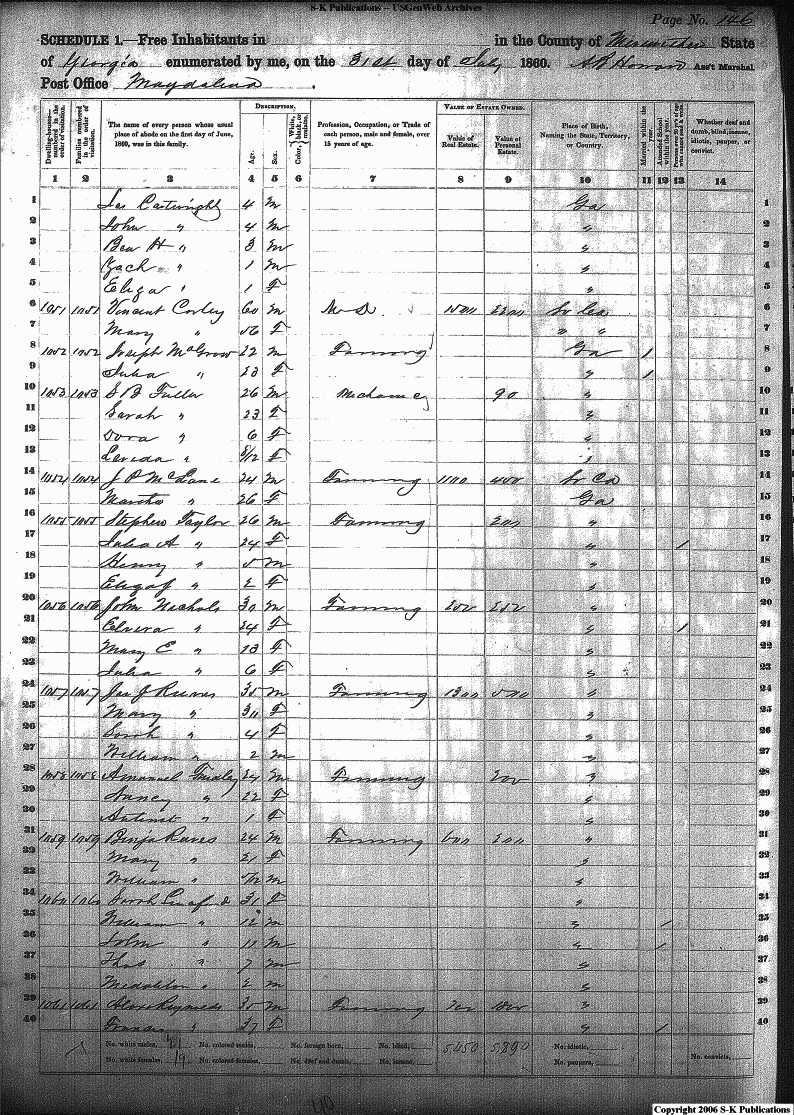 S-K Publications – USGenWeb Archives
Page No. 146
SCHEDULE 1.—Free Inhabitants in in the County of Meriwether State
of Georgia enumerated by me, on the 31st day of July 1860. Ass't Marshal
Post Office Magdalena.
Dwelling-houses—numbered in the order of visitation.
Families numbered in the order of visitation.
The name of every person whose usual place of abode on the first day of June, 1860, was in this family.
DESCRIPTION.
Age.
Sex.
Color, White, black, or mulatto.
Profession, Occupation, or Trade of each person, male and female, over 15 years of age.
VALUE OF ESTATE OWNED.
Value of Real Estate.
Value of Personal Estate.
Place of Birth, Naming the State, Territory, or Country.
Married within the year.
Attended School within the year.
Whether deaf and dumb, blind, insane, idiotic, pauper, or convict.
1 2 3 4 5 6 7 8 9 10 11 12 13 14
1 Jas Cartwright 4 m Ga 1
2 John " 4 m " 2
3 Ben H " 3 m " 3
4 Zach " 1 m " 4
5 Eliza " 1 F " 5
6 1051 1051 Vincent Corley 60 m M D. 1500 So Ca 6
7 Mary " 56 F " " 7
8 1052 1052 Joseph McGrow 22 m Farming Ga 1 8
9 Julia " 23 F " 1 9
10 1053 1053 S B Fuller 26 m Mechanic 90 " 10
11 Sarah " 23 F " 11
12 Dora " 6 F " 12
13 " 8/12 F " 13
14 1054 1054 J P McLane 24 m Farming 1100 400 So Ca 14
15 Martha " 26 F Ga 15
16 1055 1055 Stephen Taylor 26 m Farming 200 " 16
17 Julia A " 24 F " 1 17
18 Henry " 5 m " 18
19 " 2 F " 19
20 1056 1056 John Nichols 30 m Farming 250 " 20
21 Elvira " 24 F " 1 21
22 Mary E " 13 F " 22
23 Julia " 6 F " 23
24 1057 1057 Jas J Reeves 35 m Farming 1300 500 " 24
25 Mary " F " 25
26 Sarah " 4 F " 26
27 William " 2 m " 27
28 1058 1058 Amanuel 24 m Farming 200 " 28
29 Nancy " 22 F " 29
30 " 1 F " 30
31 1059 1059 Benja Reeves 24 m Farming 600 200 " 31
32 Mary " 21 F " 32
33 William " m " 33
34 1060 1060 Sarah 31 F " 34
35 William " 12 m " 1 35
36 John " 11 m " 1 36
37 Thos " 7 m " 37
38 " 2 m " 38
39 1061 1061 Reynolds 35 m Farming 700 " 39
40 Francis " 37 F " 1 40
No. white males, 21 No. colored males, No. foreign born, No. blind, 5450 5890 No. idiotic,
No. white females, 19 No. colored females, No. deaf and dumb, No. insane, No. paupers, No. convicts,
Copyright 2006 S-K Publications